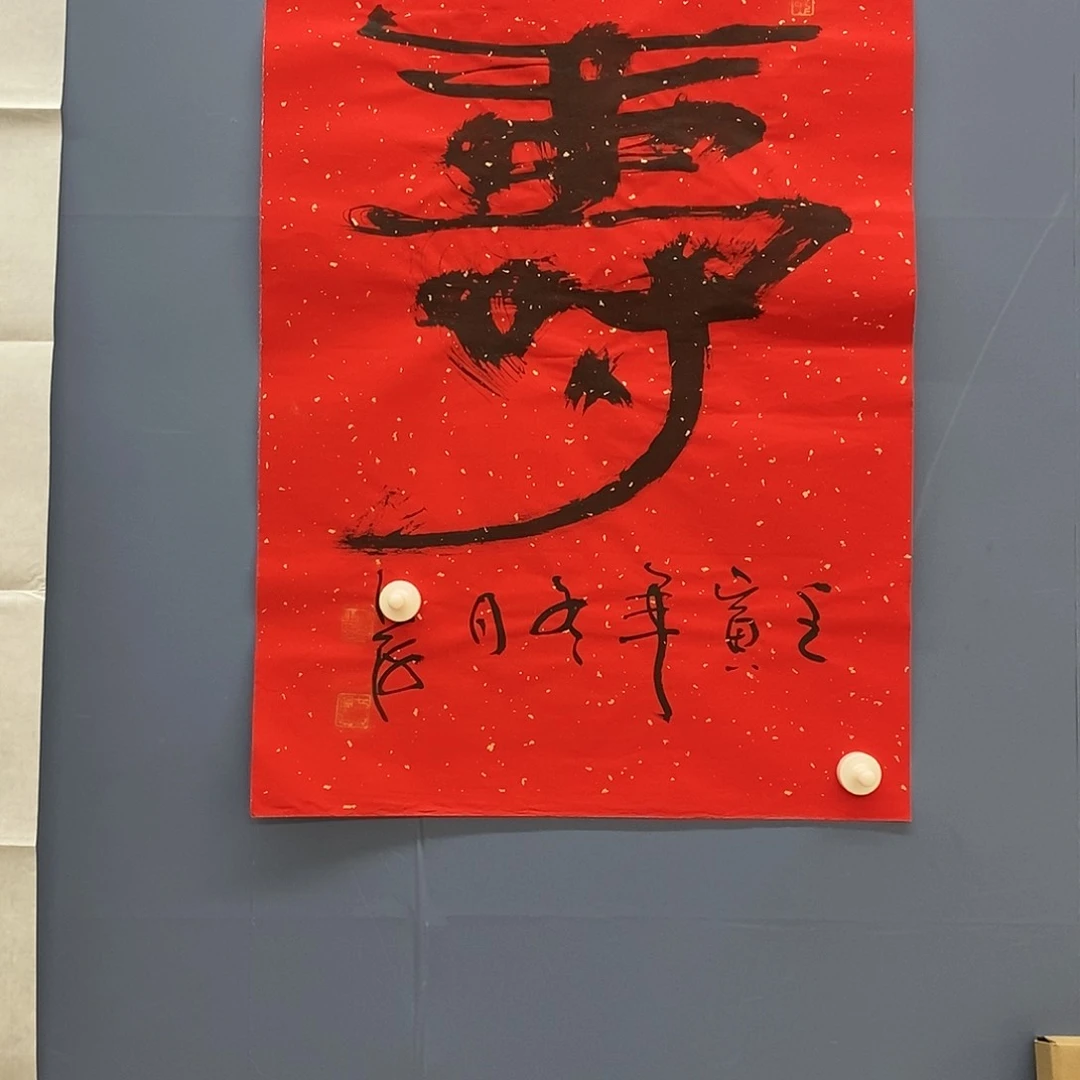 寿
壬寅年冬月